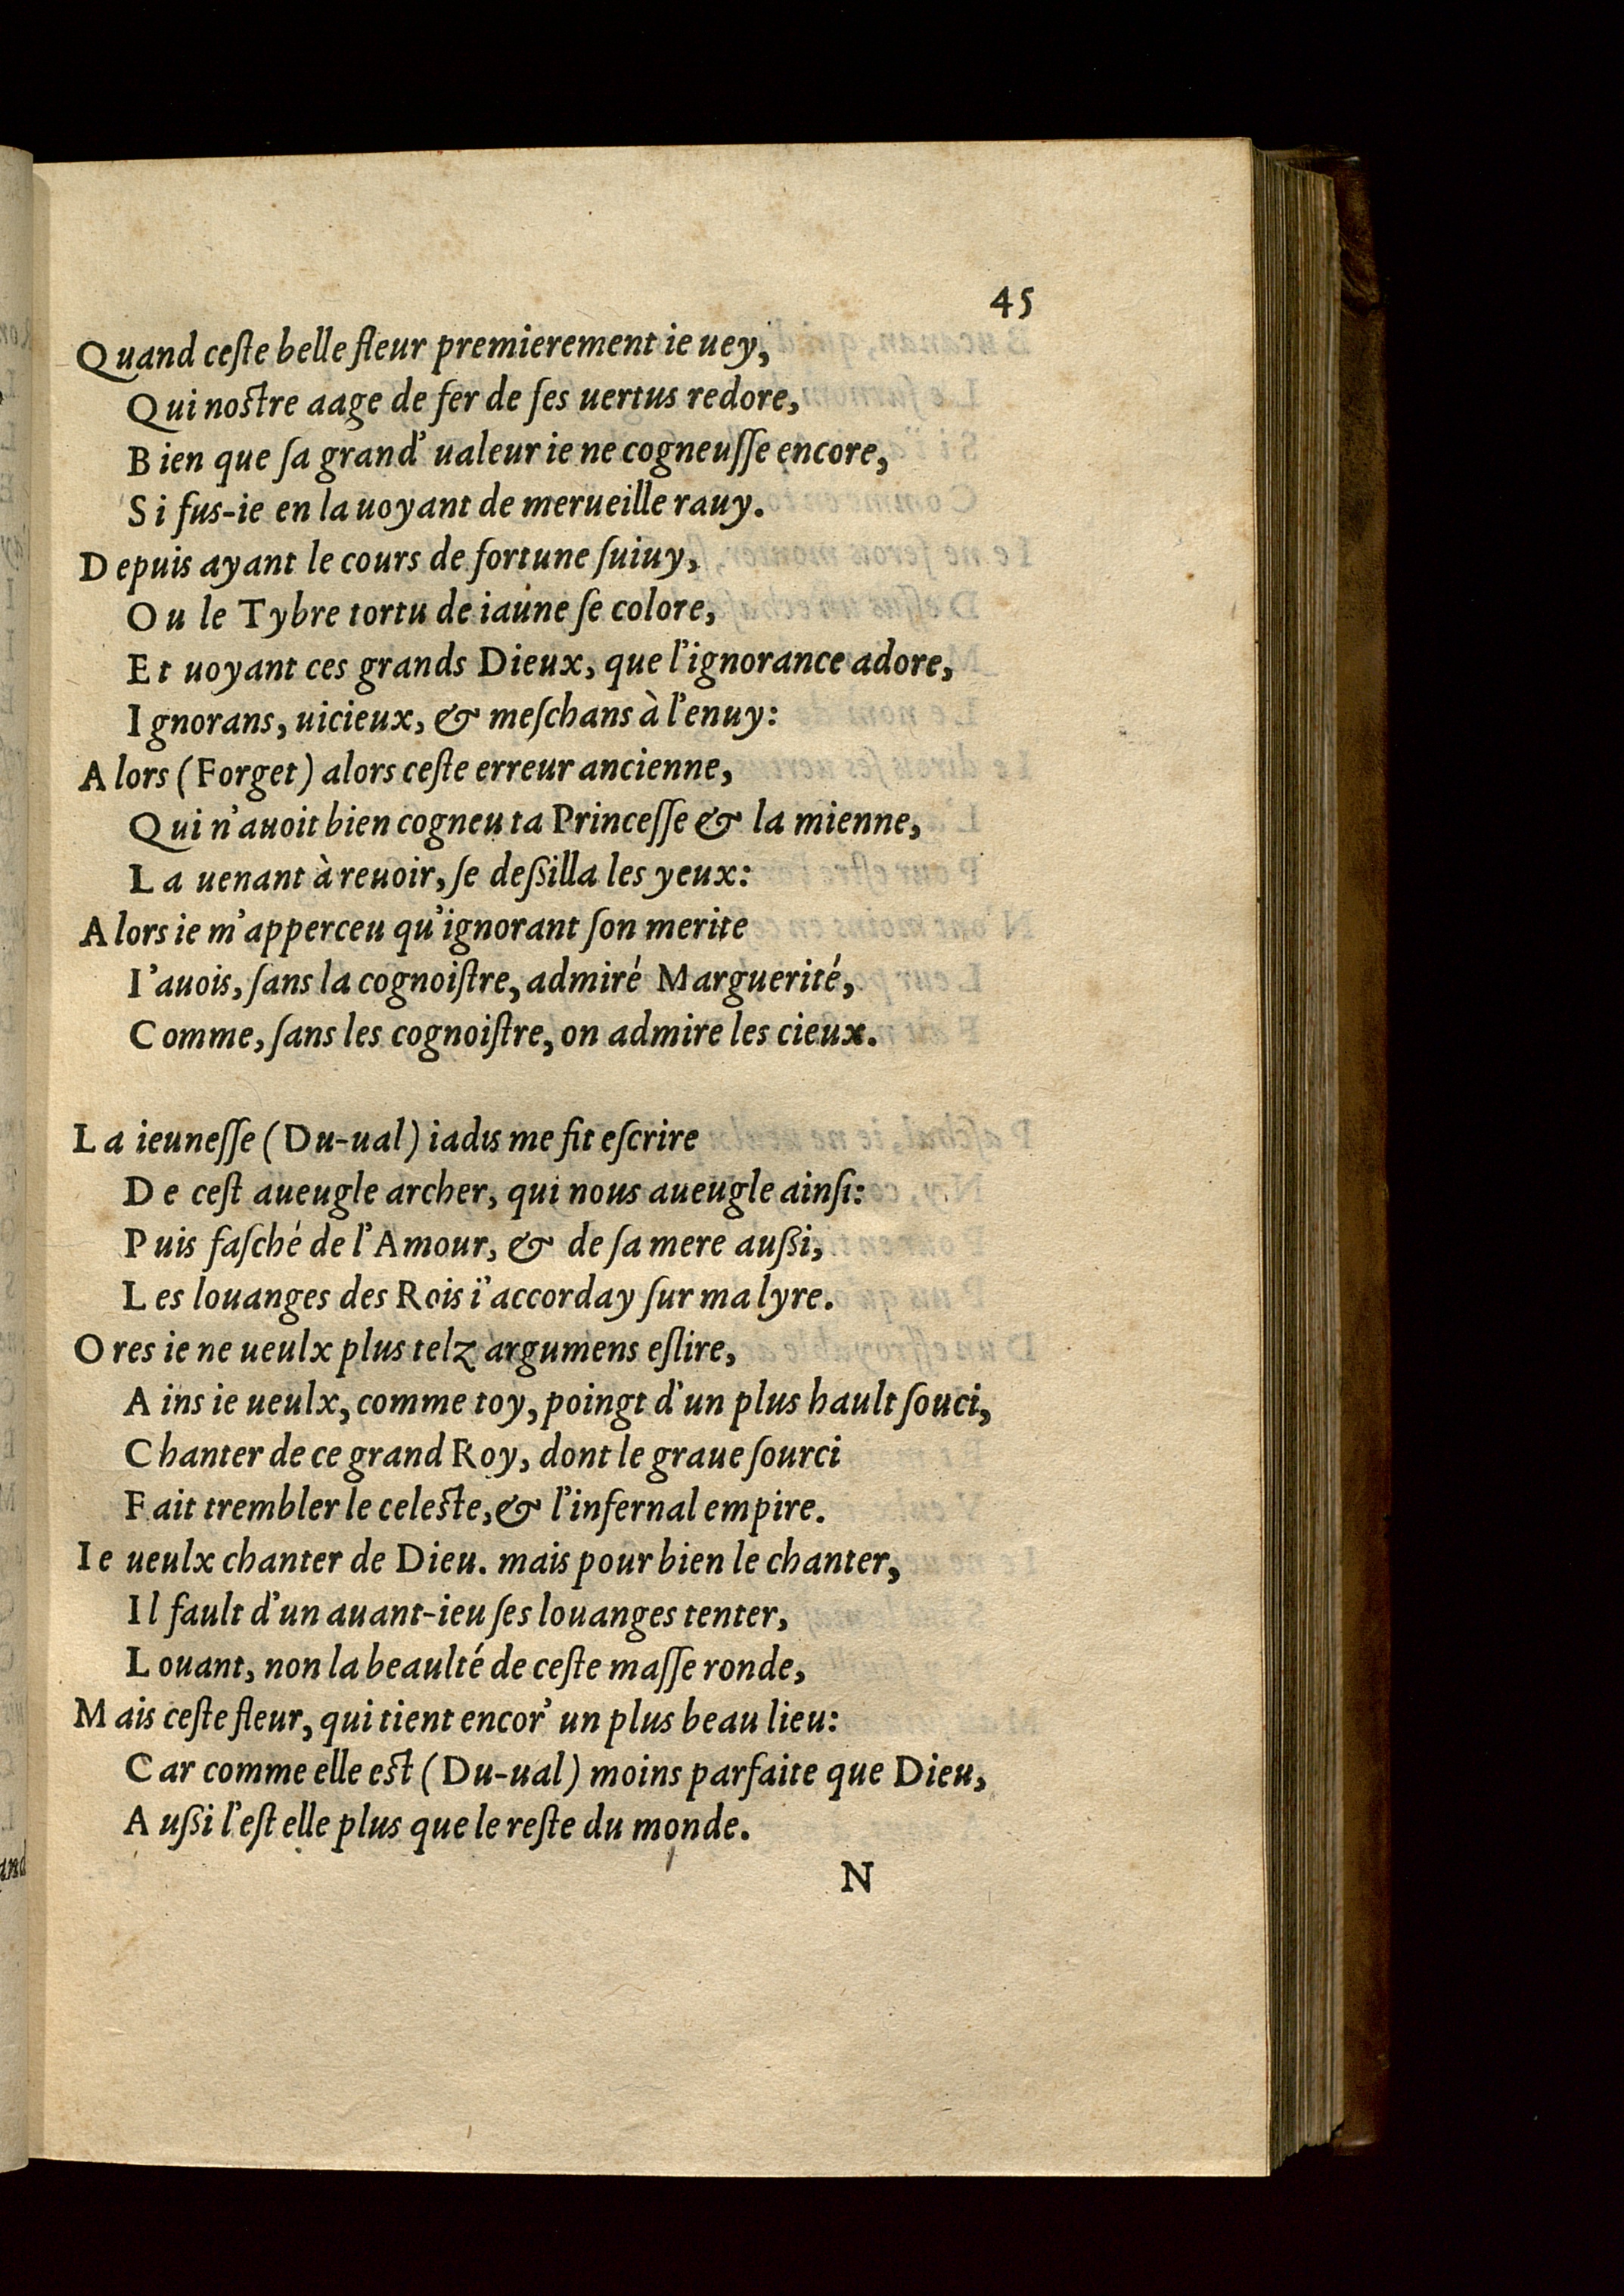 45
Quand ceſte belle fleur premierement ie uey,
Qui noſtre aage de fer de ſes uertus redore,
Bien que ſa grand' ualeur ie ne cogneuſſe encore,
Si fus-ie en la uoyant de merueille rauy.
Depuis ayant le cours de fortune ſuiuy,
Ou le Tybre tortu de iaune ſe colore,
Et uoyant ces grands Dieux, que l'ignorance adore,
Ignorans, uicieux, & meſchans à l'enuy:
Alors (Forget) alors ceſte erreur ancienne,
Qui n'auoit bien cogneu ta Princeſſe & la mienne,
La uenant à reuoir, ſe deßilla les yeux:
Alors ie m'apperceu qu'ignorant ſon merite
I'auois, ſans la cognoiſtre, admiré Marguerité,
Comme, ſans les cognoiſtre, on admire les cieux.
La ieuneſſe (Du-ual) iadis me fit eſcrire
De ceſt aueugle archer, qui nous aueugle ainſi:
Puis faſché de l'Amour, & de ſa mere außi,
Les louanges des Rois i'accorday ſur ma lyre.
Ores ie ne ueulx plus telz argumens eſlire,
Ains ie ueulx, comme toy, poingt d'un plus hault ſouci,
Chanter de ce grand Roy, dont le graue ſourci
Fait trembler le celeſte, & l'infernal empire.
Ie ueulx chanter de Dieu. mais pour bien le chanter,
Il fault d'un auant-ieu ſes louanges tenter,
Louant, non la beaulté de ceſte maſſe ronde,
Mais ceſte fleur, qui tient encor' un plus beau lieu:
Car comme elle eſt (Du-ual) moins parfaite que Dieu,
Außi l'eſt elle plus que le reſte du monde.
N